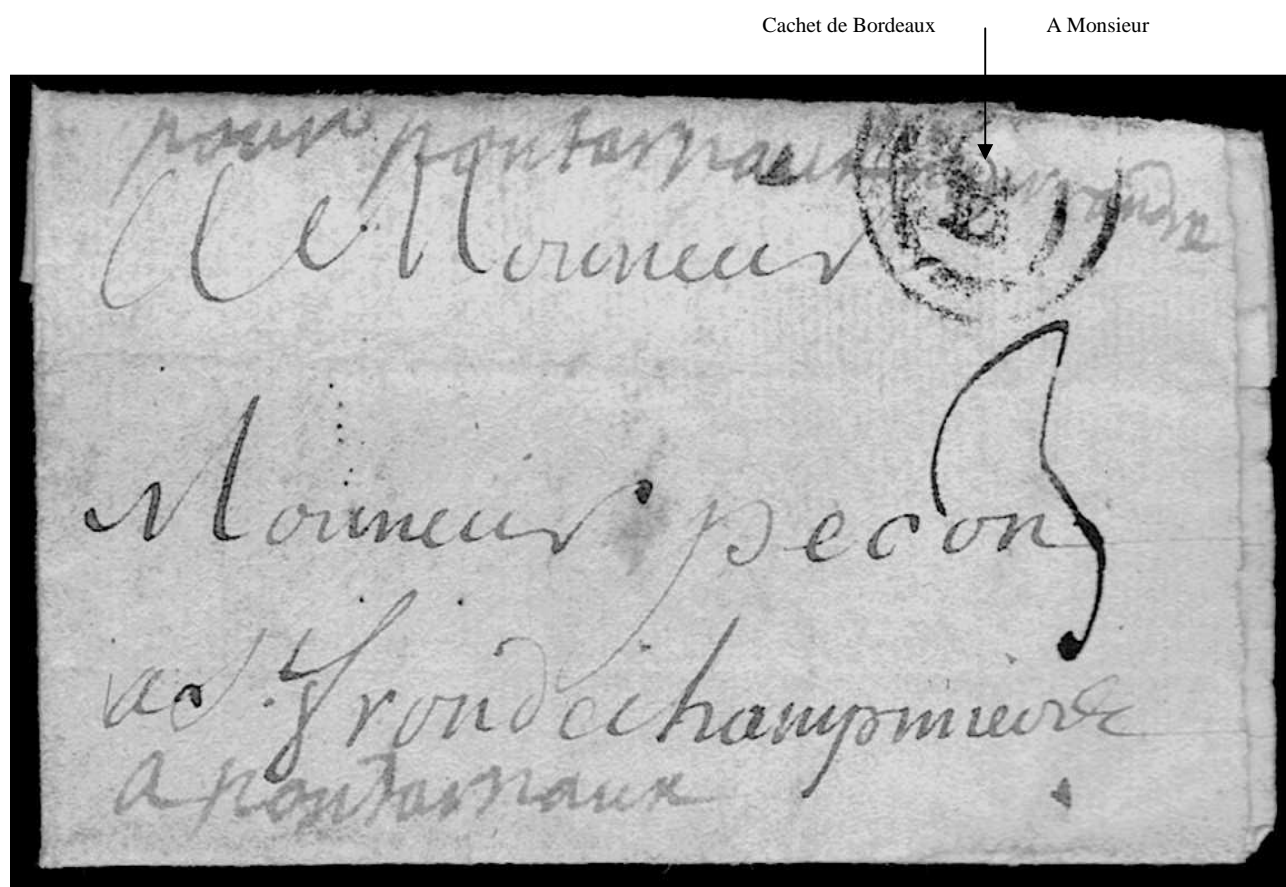 Cachet de Bordeaux A Monsieur
pour pontarnaux
A Monsieur
B
Monsieur pecon
a St frond de champnieres
a pontarnaux